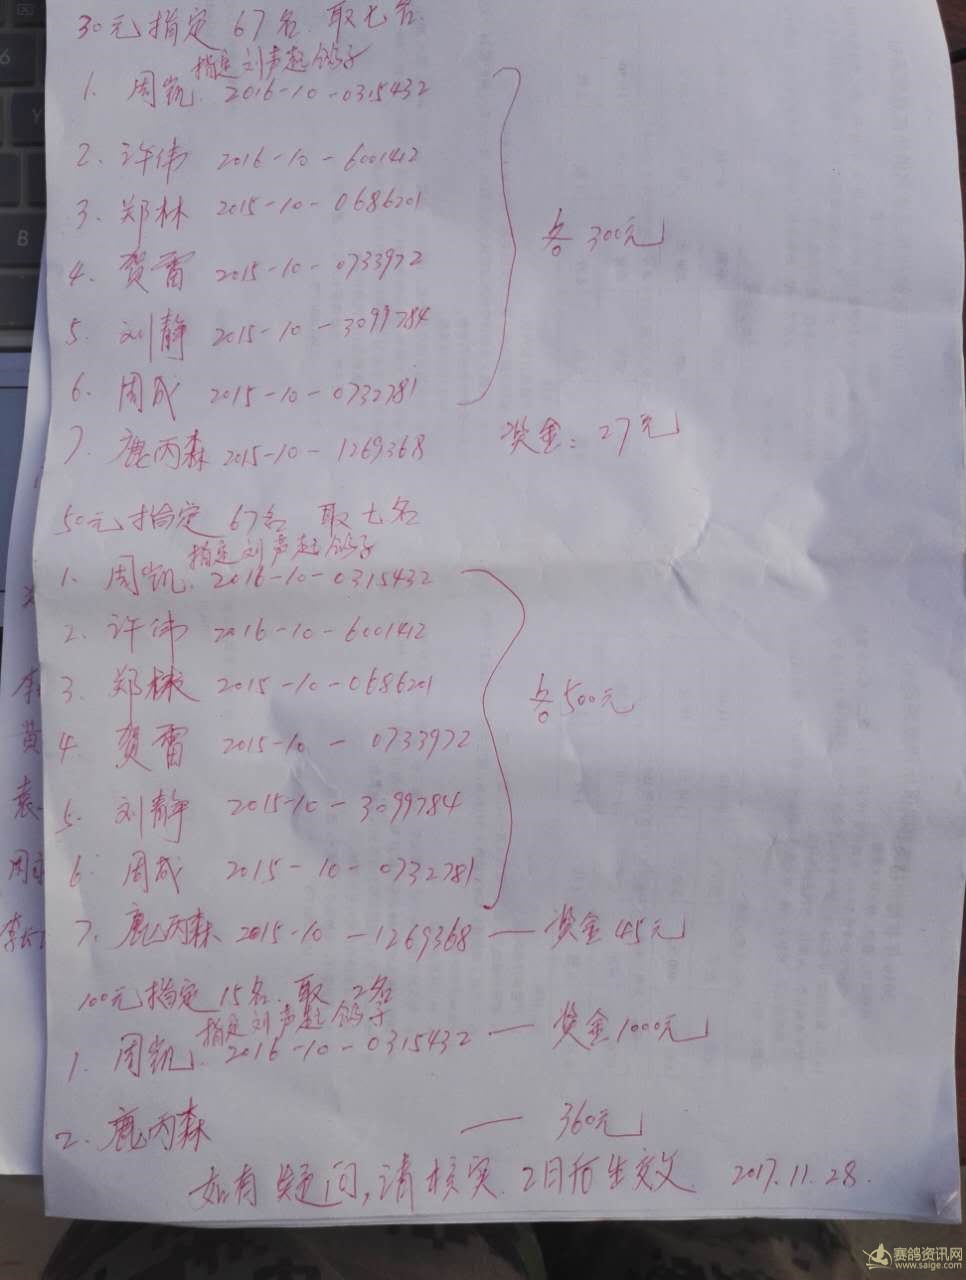 30元指定 67名 取七名
指定刘声赶鸽子
1. 周凯 2016-10-0315432
2. 许伟 2016-10-6001412
3. 郑林 2015-10-0686201
4. 贺雷 2015-10-0733972
各300元
5. 刘静 2015-10-3099784
6. 周成 2015-10-0732781
7. 鹿丙森 2015-10-1269368 奖金:27元
50元指定 67名 取七名
指定刘声赶鸽子
1. 周凯 2016-10-0315432
2. 许伟 2016-10-6001412
3. 郑林 2015-10-0686201
各500元
4. 贺雷 2015-10-0733972
5. 刘静 2015-10-3099784
6. 周成 2015-10-0732781
7. 鹿丙森 2015-10-1269368 — 奖金45元
100元指定 15名 取2名
指定刘声赶鸽子
1. 周凯 2016-10-0315432 — 奖金1000元
2. 鹿丙森 — 360元
如有疑问,请核实 2日后生效 2017.11.28.
赛鸽资讯网
www.saige.com